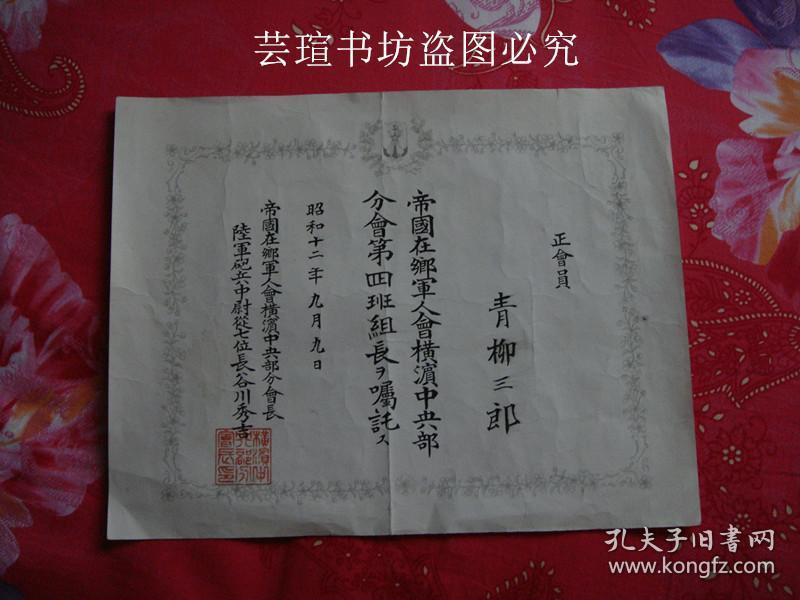 芸瑄书坊盗图必究
正會員
青柳三郎
帝國在郷軍人會横濱中央部
分會第四班組長ヲ囑託ス
昭和十二年九月九日
帝國在郷軍人會横濱中央部分會長
陸軍砲兵中尉從七位長谷川秀吉
孔夫子旧書网
www.kongfz.com